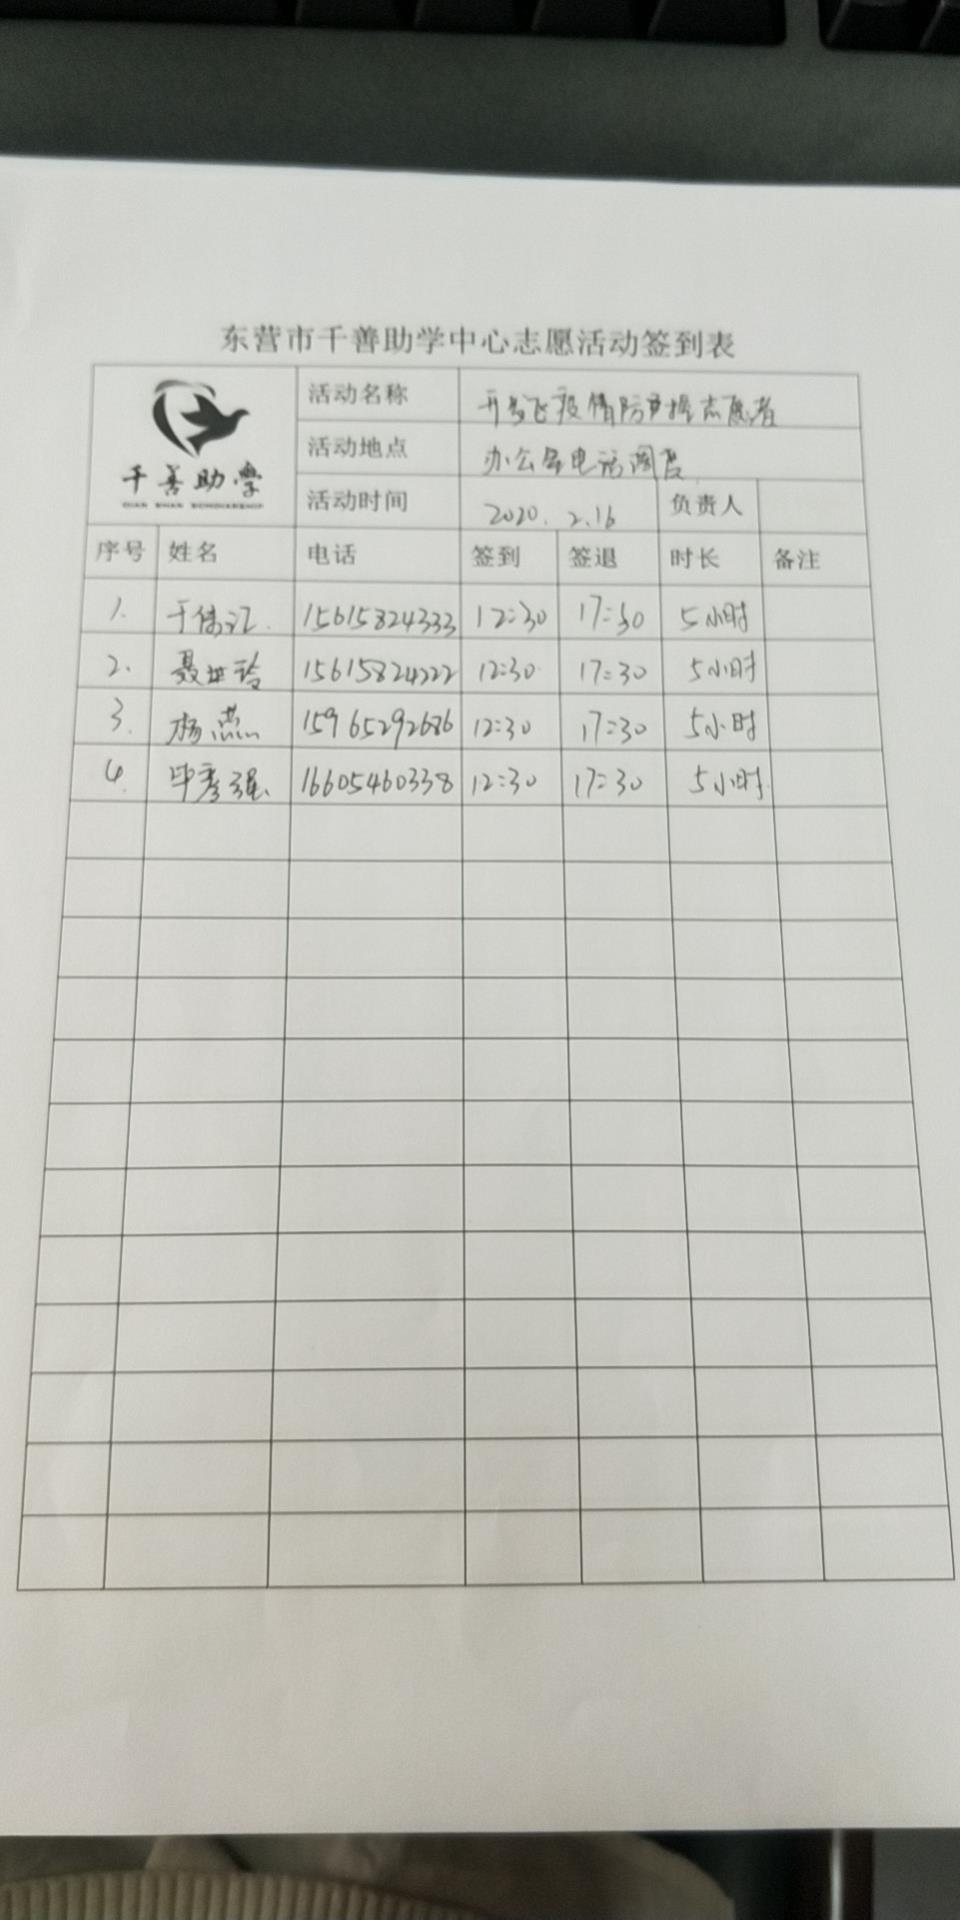 东营市千善助学中心志愿活动签到表
千善助学
QIAN SHAN SCHOLARSHIP
活动名称 疫情防控志愿者
活动地点 办公室电话调度
活动时间 2020.2.16 负责人
序号 姓名 电话 签到 签退 时长 备注
1. 于 15615824333 12:30 17:30 5小时
2. 聂 玲 15615824222 12:30 17:30 5小时
3. 杨燕 15965292686 12:30 17:30 5小时
4. 毕彦强 16605460338 12:30 17:30 5小时